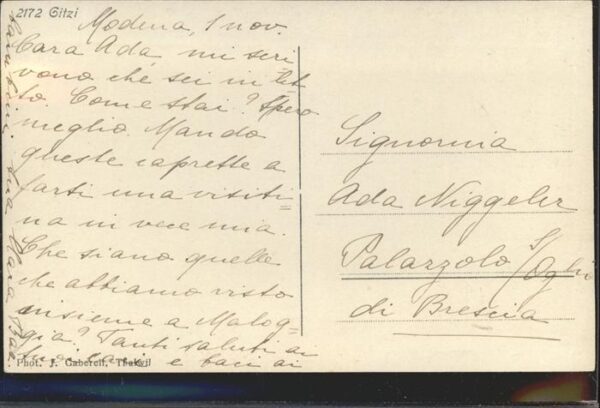 2172 Gitzi
Modena, 1 nov.
Cara Ada, mi scri
vono che sei in let
to. Come stai? Spero
meglio. Mando
queste caprette a
farti una visiti
na in vece mia.
Che siano quelle
che abbiamo visto
insieme a Malog
gia? Tanti saluti ai
tuoi cari e baci ai
tua Mara
Phot. J. Gaberell, Thalwil
Signorina
Ada Niggeler
Palazzolo s/Oglio
di Brescia